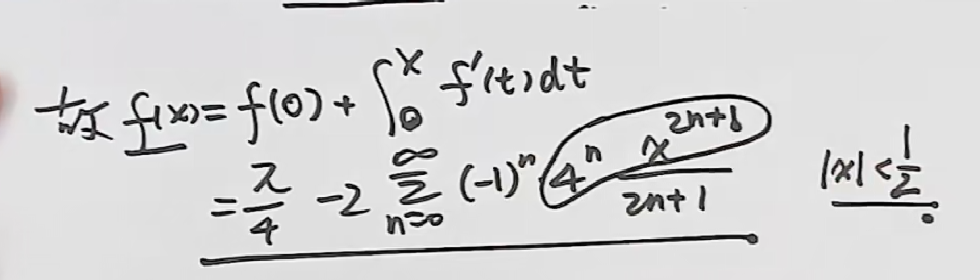 f(x) = f(0) + ∫₀ˣ f'(t)dt
= π/4 - 2 ∑_{n=0}^{∞} (-1)ⁿ 4ⁿ x^{2n+1}/(2n+1) |x| < 1/2